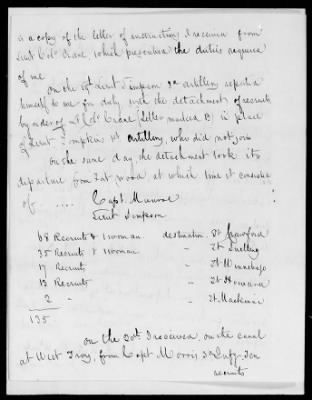 is a copy of the letter of instructions I received from
Lieut Col. Crane, which prescribed the duties required
of me.
On the Lieut Simpson 3d artillery reported
himself to me for duty with the detachment of recruits
by order of Lt Col. Crane (letter marked B) in place
of Lieut Tompkins 1st artillery, who did not join
On the same day, the detachment took its
departure from Fort Wood at which time it consisted
of ....  Capt. Munroe
Lieut Simpson
68 Recruits & 1 woman destination Ft Crawford
35 Recruits & 1 woman " Ft Snelling
17 Recruits " Ft Winnebago
13 Recruits " Ft Howard
2 " " Ft Mackinac
135
On the 30th I received, on the canal
at West Troy, from Capt Morris 3d Infy. Ten
recruits